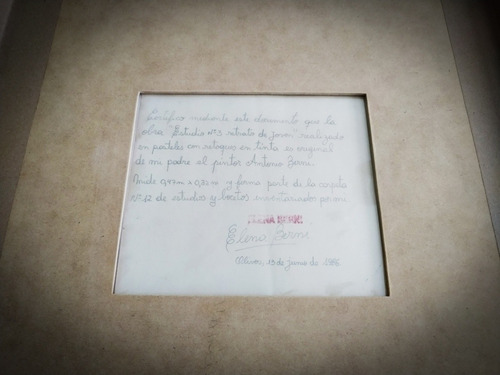 Certifico mediante este documento que la
obra "Estudio Nº3 retrato de joven" realizado
en pasteles con retoques en tinta es original
de mi padre el pintor Antonio Berni.
Mide 0,47m x 0,32m y forma parte de la carpeta
Nº12 de estudios y bocetos inventariados por mi
ELENA BERNI
Elena Berni
19 de junio de 1986